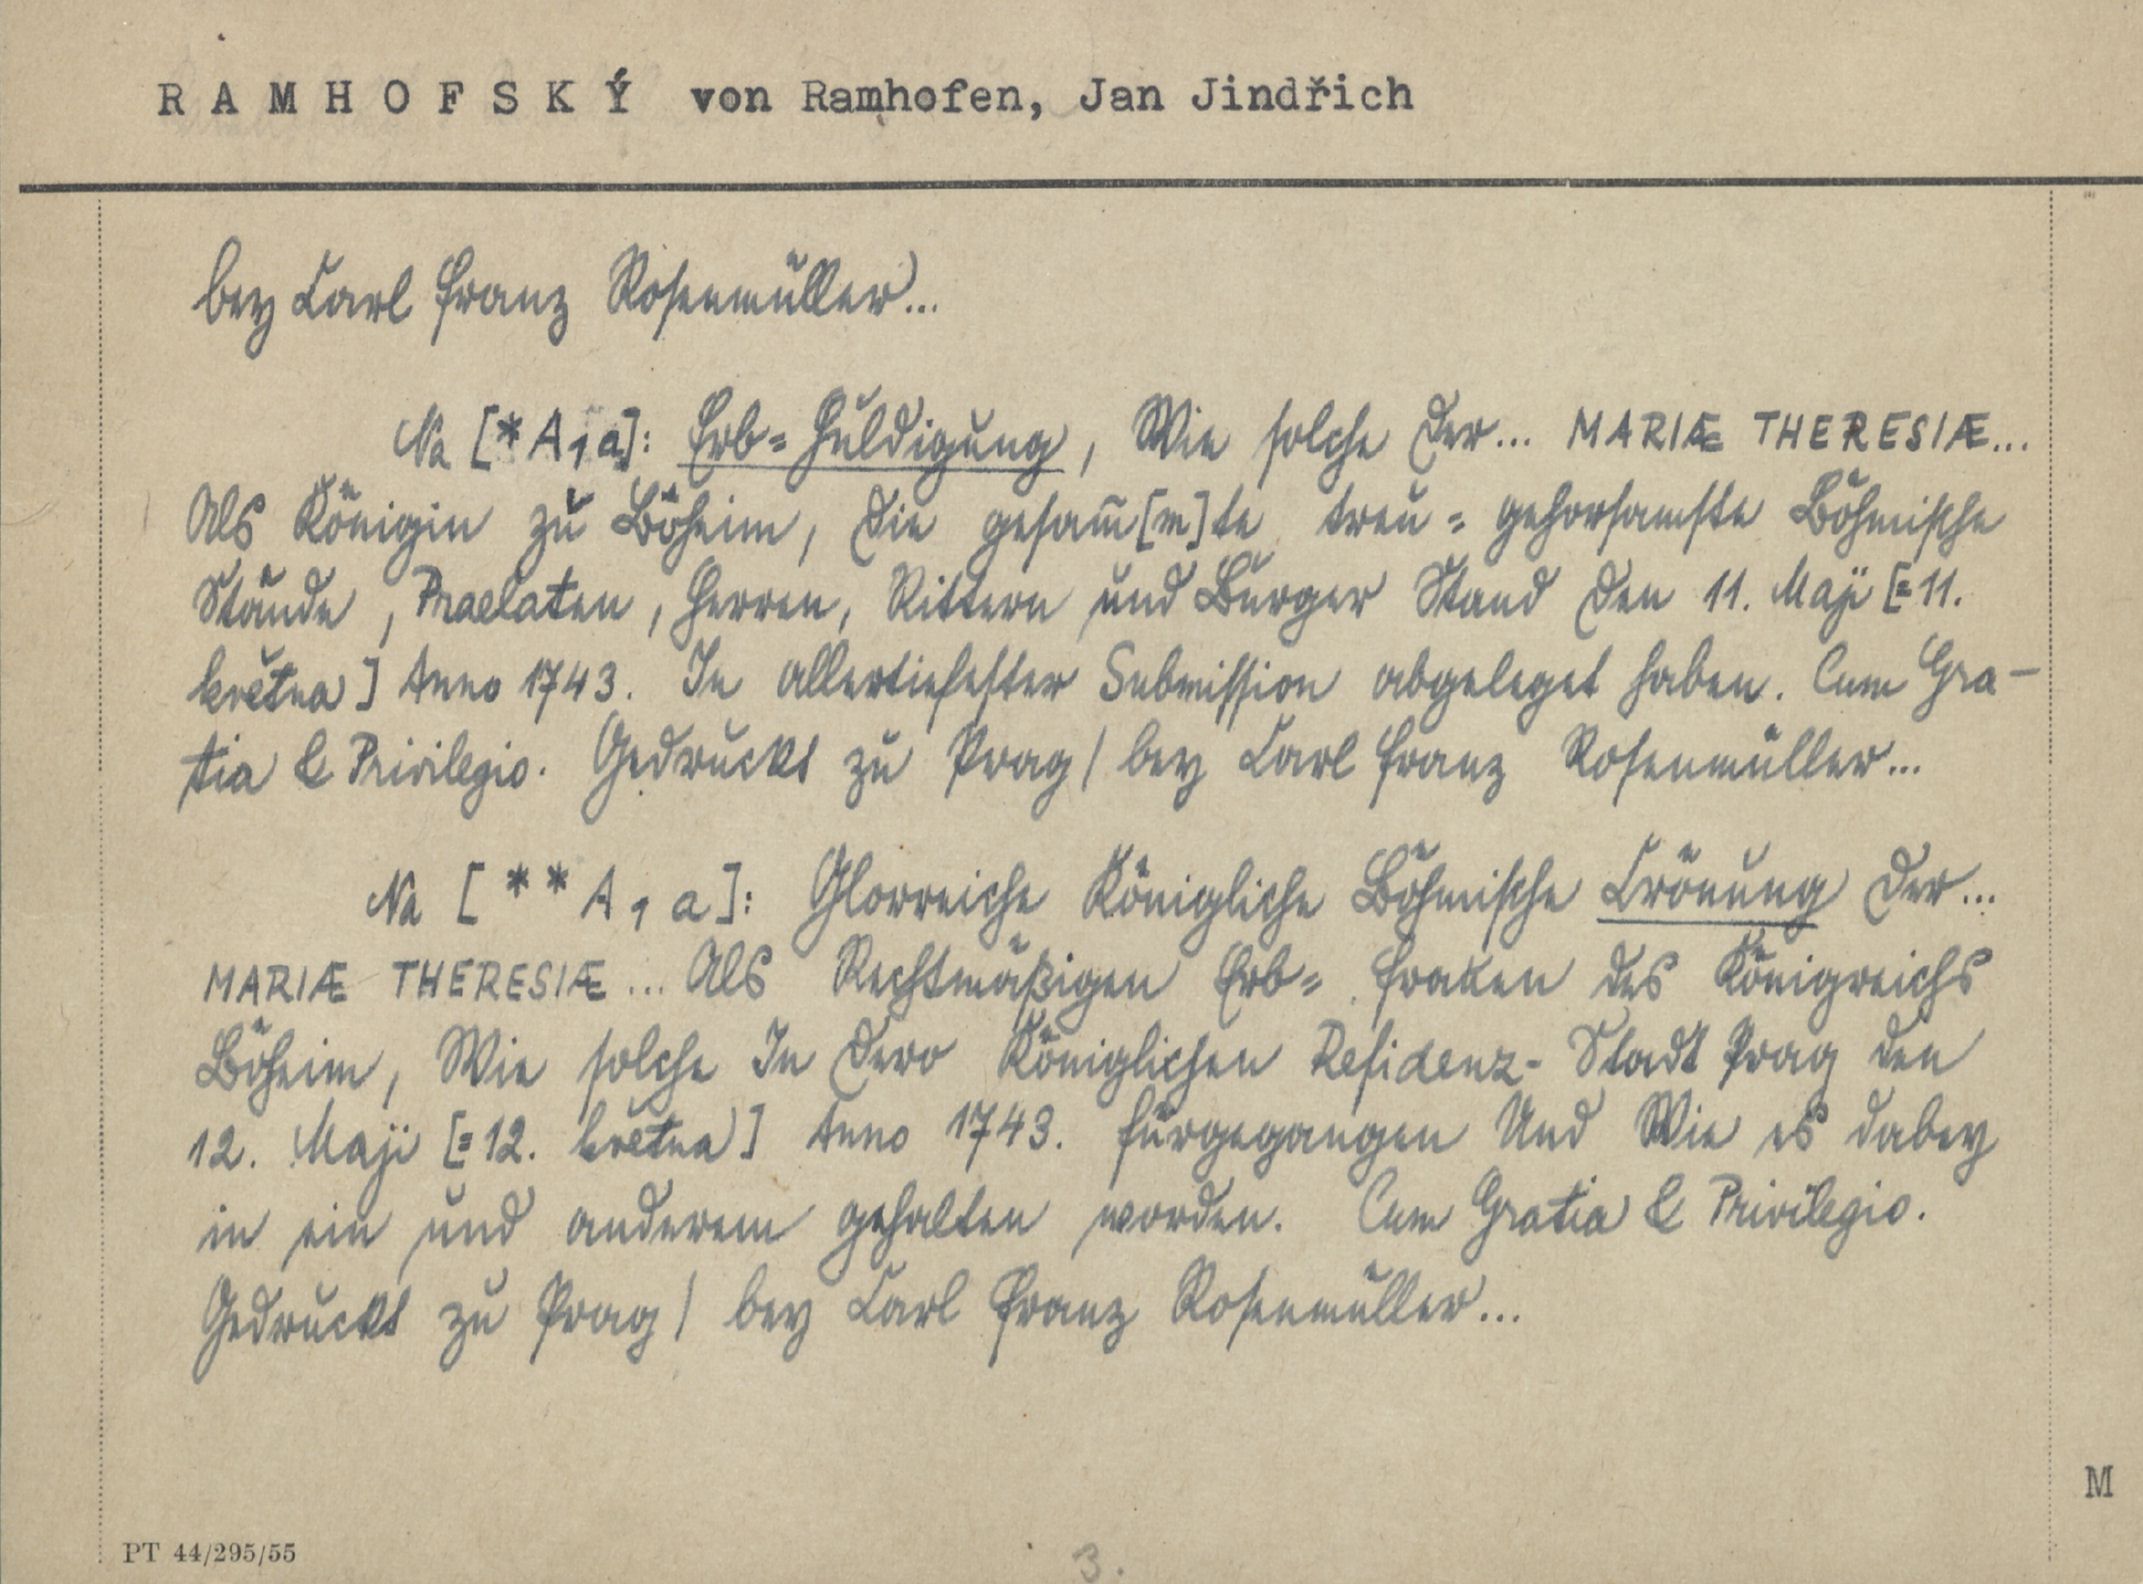 RAMHOFSKÝ von Ramhofen, Jan Jindřich
bey Carl Franz Rosenmüller...
Na [*A1a]: Erb=Huldigung, Wie solche Der... MARIÆ THERESIÆ...
Als Königin zu Böheim, Die gesam̅[m]te treu=gehorsamste Böhmische
Stände, Praelaten, Herren, Rittern und Burger Stand Den 11. Maji [=11.
května] Anno 1743. In allertiefester Submission abgeleget haben. Cum Gra-
tia & Privilegio. Gedruckt zu Prag / bey Carl Franz Rosenmüller...
Na [**A1a]: Glorreiche Königliche Böhmische Crönung Der...
MARIÆ THERESIÆ... Als Rechtmäßigen Erb=Frauen des Königreichs
Böheim, Wie solche In Dero Königlichen Residenz-Stadt Prag den
12. Maji [=12. května] Anno 1743. fürgegangen Und Wie es dabey
in ein und anderem gehalten worden. Cum Gratia & Privilegio.
Gedruckt zu Prag / bey Carl Franz Rosenmüller...
M
PT 44/295/55
3.